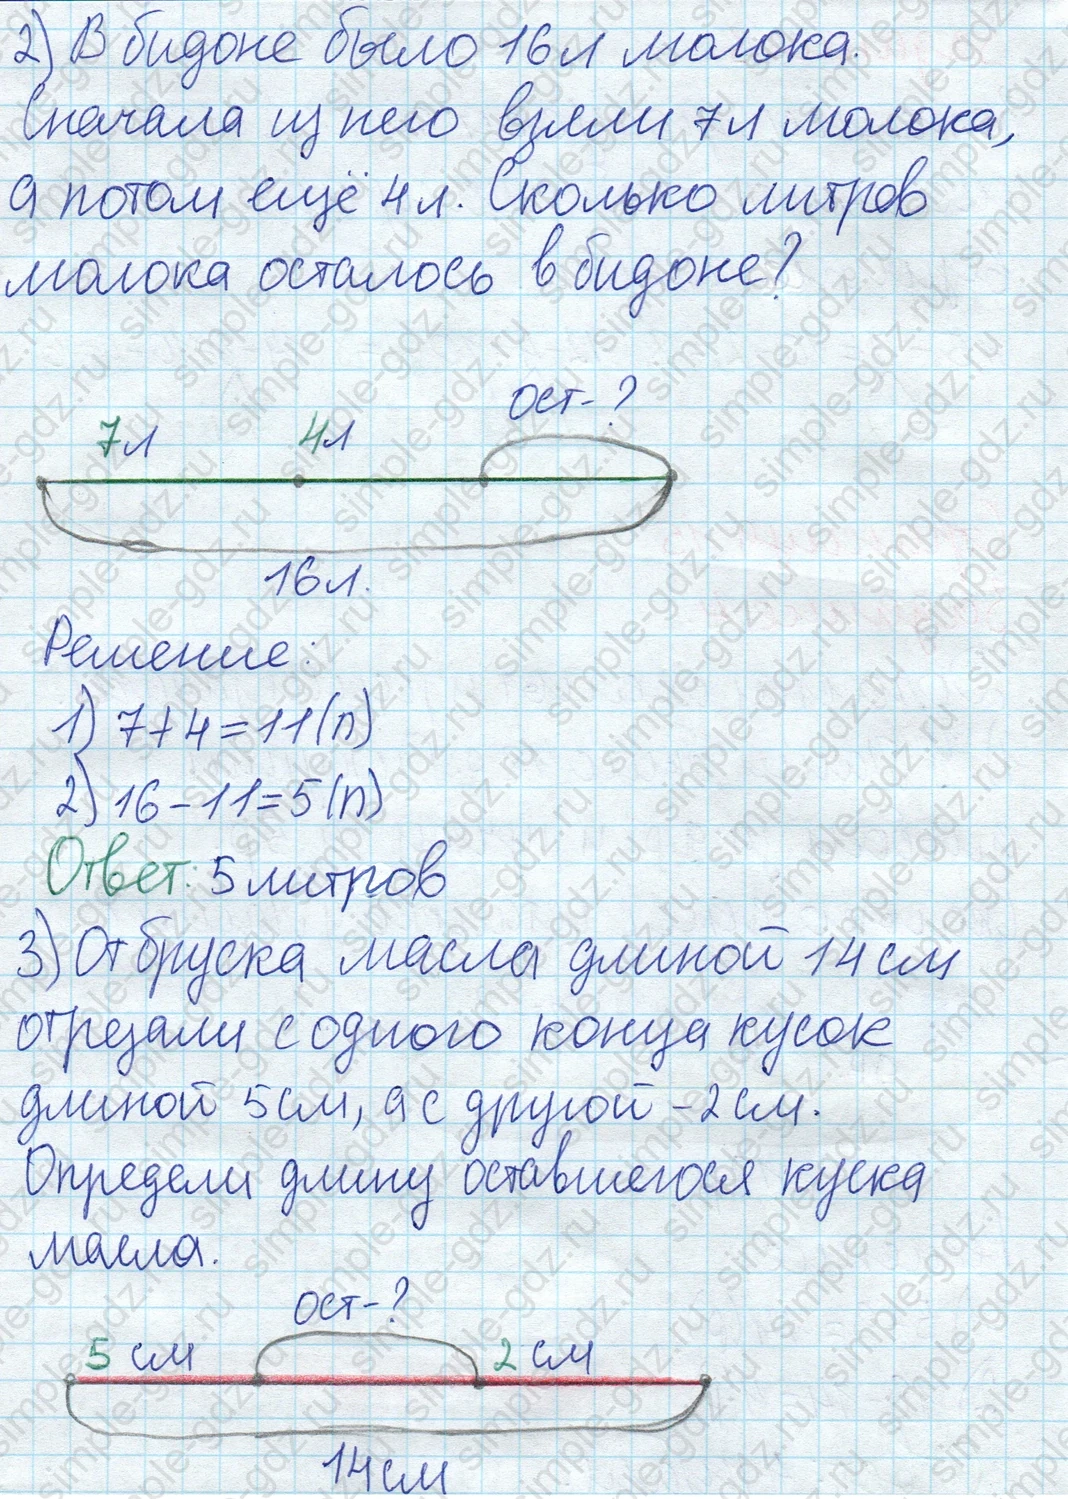 2) В бидоне было 16л молока.
Сначала из него взяли 7л молока,
а потом ещё 4л. Сколько литров
молока осталось в бидоне?
ост-?
7л 4л
16л.
Решение:
1) 7+4=11(л)
2) 16-11=5(л)
Ответ: 5 литров
3) От бруска масла длиной 14см
отрезали с одного конца кусок
длиной 5см, а с другой -2см.
Определи длину оставшегося куска
масла.
ост-?
5 см 2 см
14см
simple-gdz.ru